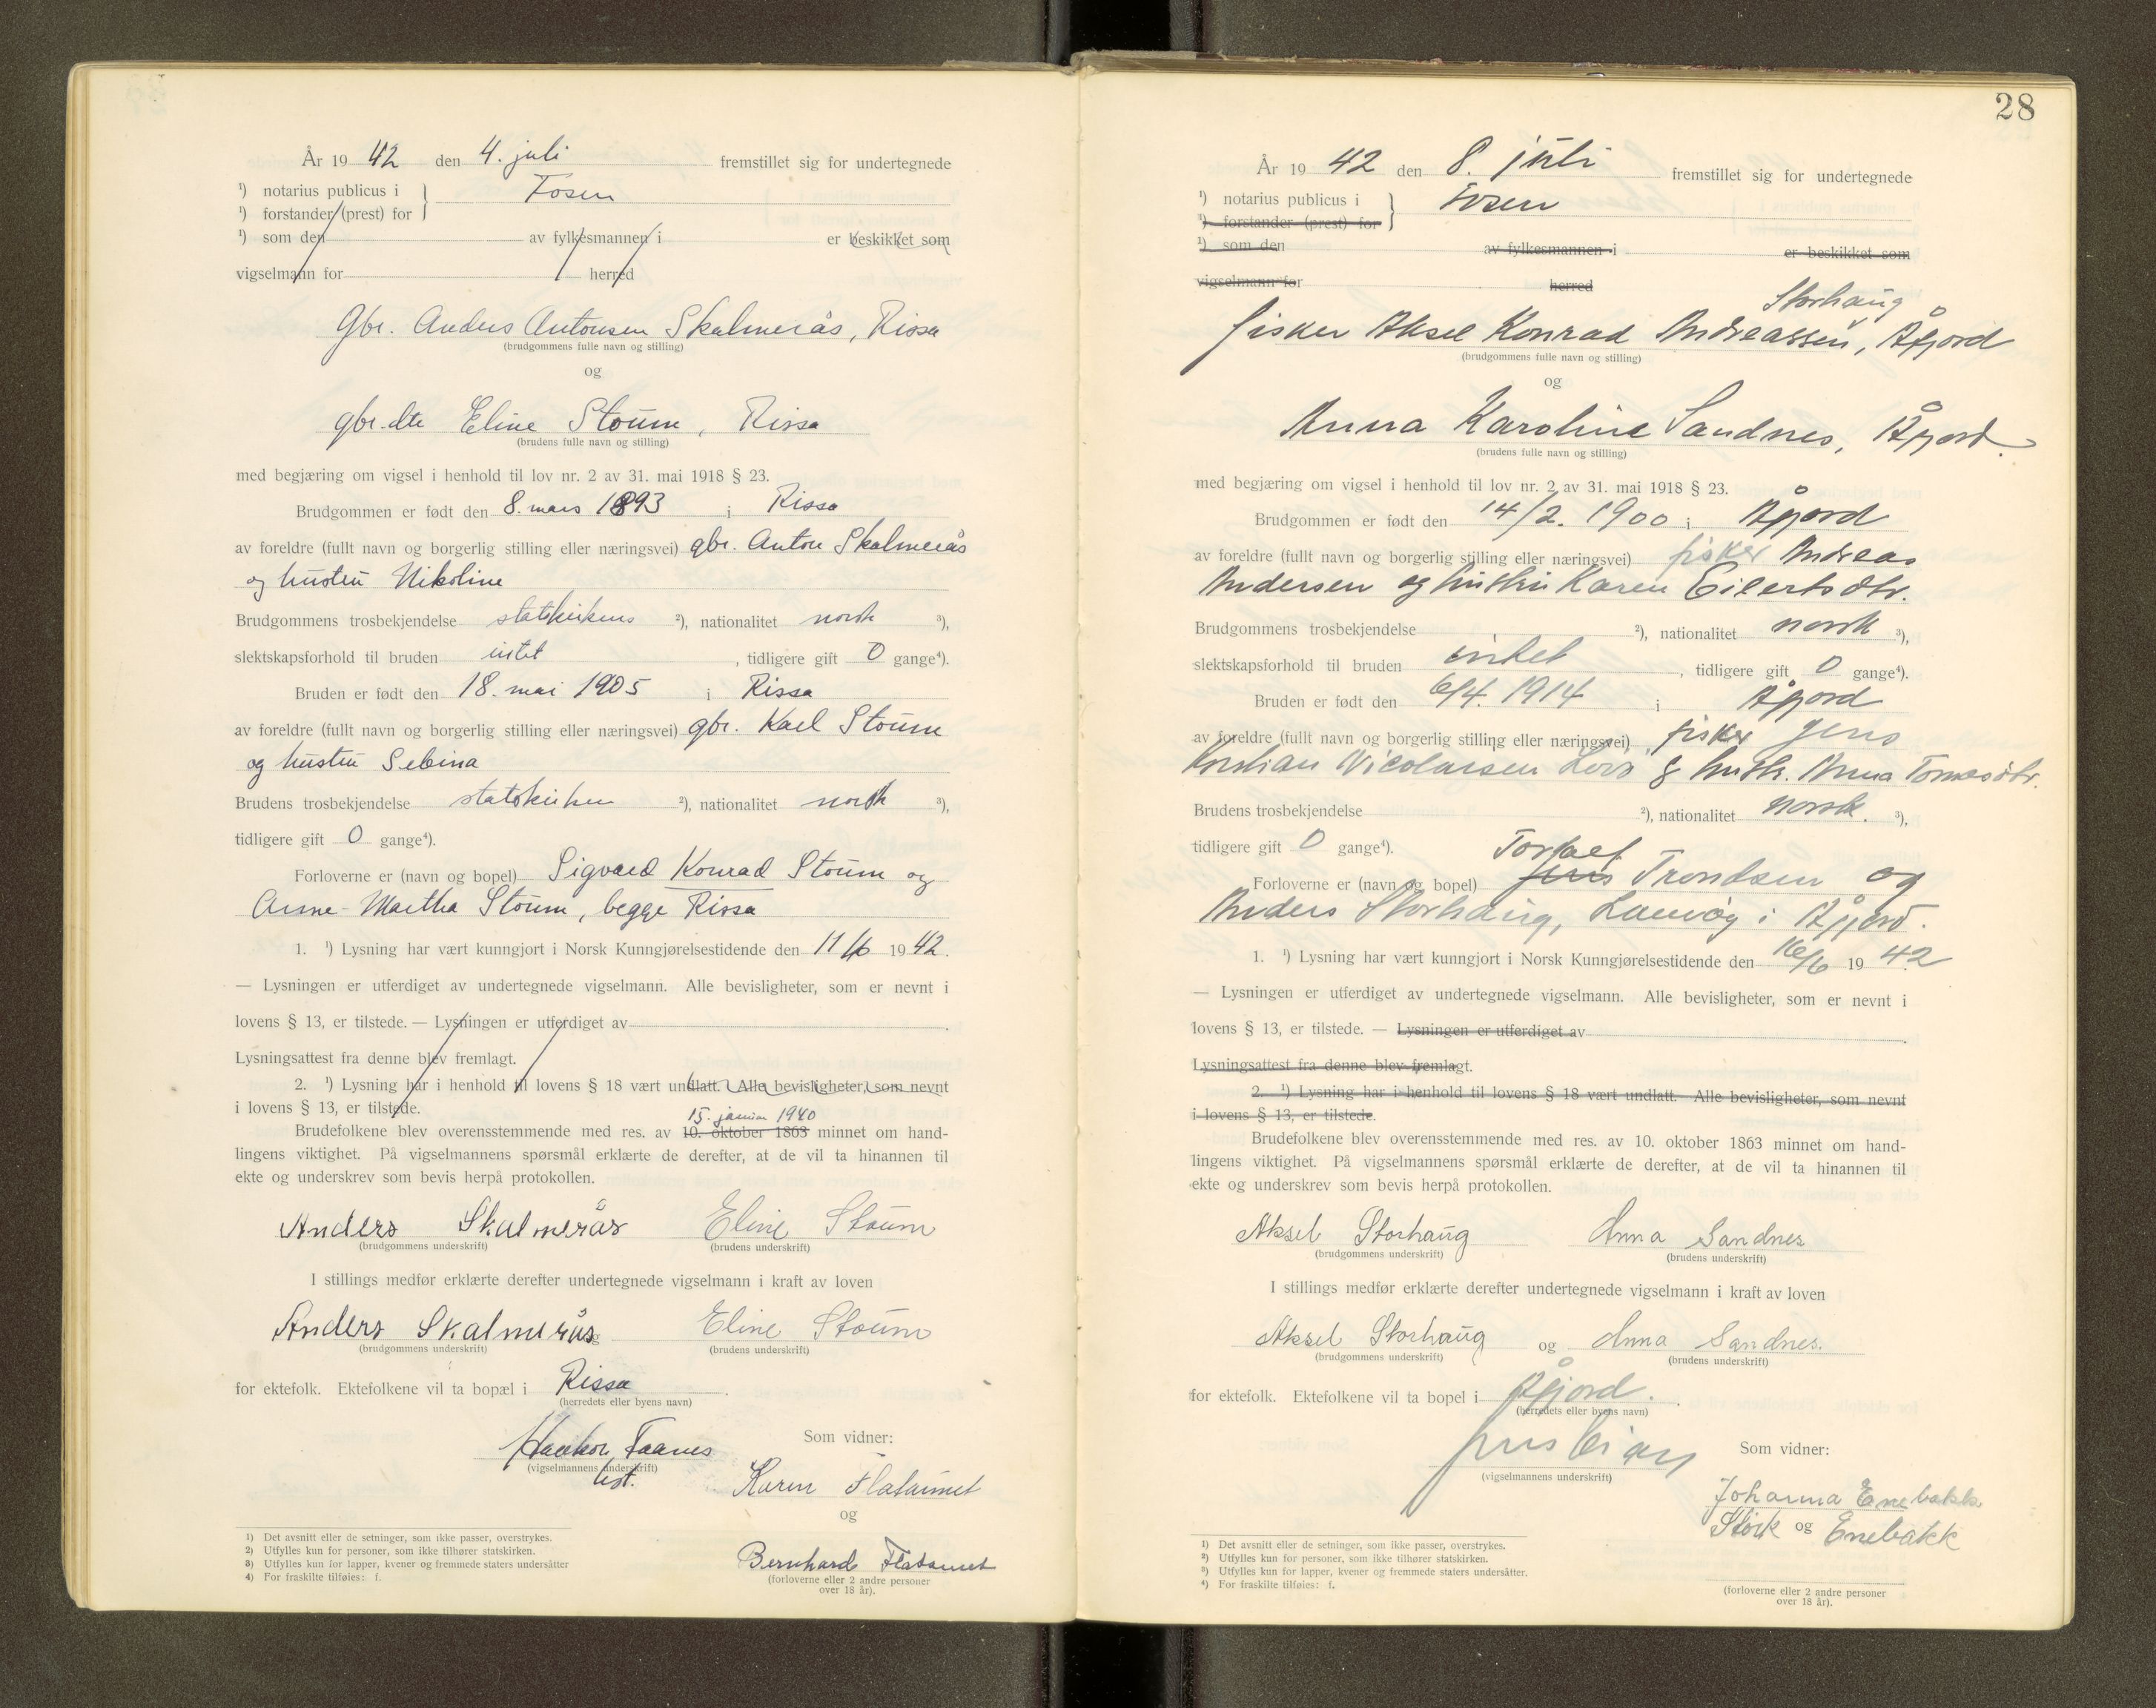 År 19 42 den 4. juli fremstillet sig for undertegnede
¹) notarius publicus i } Fosen
¹) forstander (prest) for
¹) som den av fylkesmannen i er beskikket som
vigselmann for herred
Gbr. Anders Antonsen Skalmerås, Rissa
(brudgommens fulle navn og stilling)
og
gbr.dte Eline Stoum, Rissa
(brudens fulle navn og stilling)
med begjæring om vigsel i henhold til lov nr. 2 av 31. mai 1918 § 23.
Brudgommen er født den 8. mars 1893 i Rissa
av foreldre (fullt navn og borgerlig stilling eller næringsvei) gbr. Anton Skalmerås
og hustru Nikoline
Brudgommens trosbekjendelse statskirkens ²), nationalitet norsk ³),
slektskapsforhold til bruden intet, tidligere gift 0 gange⁴).
Bruden er født den 18. mai 1905 i Rissa
av foreldre (fullt navn og borgerlig stilling eller næringsvei) gbr. Karl Stoum
og hustru Sebina
Brudens trosbekjendelse statskirken ²), nationalitet norsk ³),
tidligere gift 0 gange⁴).
Forloverne er (navn og bopel) Sigvard Konrad Stoum og
Anne-Martha Stoum, begge Rissa
1. ¹) Lysning har vært kunngjort i Norsk Kunngjørelsestidende den 11/6 1942.
— Lysningen er utferdiget av undertegnede vigselmann. Alle bevisligheter, som er nevnt i
lovens § 13, er tilstede. — Lysningen er utferdiget av .
Lysningsattest fra denne blev fremlagt.
2. ¹) Lysning har i henhold til lovens § 18 vært undlatt. Alle bevisligheter, som nevnt
i lovens § 13, er tilstede.
15. januar 1940
Brudefolkene blev overensstemmende med res. av 10. oktober 1863 minnet om hand-
lingens viktighet. På vigselmannens spørsmål erklærte de derefter, at de vil ta hinannen til
ekte og underskrev som bevis herpå protokollen.
Anders Skalmerås Eline Stoum
(brudgommens underskrift) (brudens underskrift)
I stillings medfør erklærte derefter undertegnede vigselmann i kraft av loven
Anders Skalmerås og Eline Stoum
(brudgommens underskrift) (brudens underskrift)
for ektefolk. Ektefolkene vil ta bopæl i Rissa.
(herredets eller byens navn)
Haakon Faanes
Som vidner:
(vigselmannens underskrift)
Karen Flataunet
og
Bernhard Flataunet
(forloverne eller 2 andre personer
over 18 år).
1) Det avsnitt eller de setninger, som ikke passer, overstrykes.
2) Utfylles kun for personer, som ikke tilhører statskirken.
3) Utfylles kun for lapper, kvener og fremmede staters undersåtter
4) For fraskilte tilføies: f.
28
År 19 42 den 8. juli fremstillet sig for undertegnede
¹) notarius publicus i } Fosen
¹) forstander (prest) for
¹) som den av fylkesmannen i er beskikket som
vigselmann for herred
Storhaug
fisker Aksel Konrad Andreassen, Åfjord
(brudgommens fulle navn og stilling)
og
Anna Karoline Sandnes, Åfjord.
(brudens fulle navn og stilling)
med begjæring om vigsel i henhold til lov nr. 2 av 31. mai 1918 § 23.
Brudgommen er født den 14/2. 1900 i Åfjord
av foreldre (fullt navn og borgerlig stilling eller næringsvei) fisker Andreas
Andersen og hustru Karen Eilertsdtr.
Brudgommens trosbekjendelse ²), nationalitet norsk ³),
slektskapsforhold til bruden intet, tidligere gift 0 gange⁴).
Bruden er født den 6/4. 1914 i Åfjord
av foreldre (fullt navn og borgerlig stilling eller næringsvei) fisker Jens
Kristian Nicolaisen & hustr. Anna
Brudens trosbekjendelse ²), nationalitet norsk. ³),
tidligere gift 0 gange⁴).
Forloverne er (navn og bopel) Jens Trondsen og
Anders Storhaug, i Åfjord.
1. ¹) Lysning har vært kunngjort i Norsk Kunngjørelsestidende den 16/6 1942
— Lysningen er utferdiget av undertegnede vigselmann. Alle bevisligheter, som er nevnt i
lovens § 13, er tilstede. — Lysningen er utferdiget av .
Lysningsattest fra denne blev fremlagt.
2. ¹) Lysning har i henhold til lovens § 18 vært undlatt. Alle bevisligheter, som nevnt
i lovens § 13, er tilstede.
Brudefolkene blev overensstemmende med res. av 10. oktober 1863 minnet om hand-
lingens viktighet. På vigselmannens spørsmål erklærte de derefter, at de vil ta hinannen til
ekte og underskrev som bevis herpå protokollen.
Aksel Storhaug Anna Sandnes
(brudgommens underskrift) (brudens underskrift)
I stillings medfør erklærte derefter undertegnede vigselmann i kraft av loven
Aksel Storhaug og Anna Sandnes.
(brudgommens underskrift) (brudens underskrift)
for ektefolk. Ektefolkene vil ta bopel i Åfjord.
(herredets eller byens navn)
Som vidner:
(vigselmannens underskrift)
Johanna Enebakk
og Enebakk
(forloverne eller 2 andre personer
over 18 år).
1) Det avsnitt eller de setninger, som ikke passer, overstrykes.
2) Utfylles kun for personer, som ikke tilhører statskirken.
3) Utfylles kun for lapper, kvener og fremmede staters undersåtter.
4) For fraskilte tilføies: f.